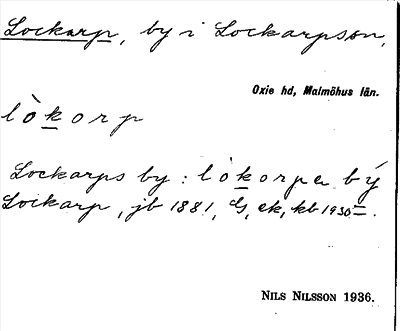 Lockarp, by i Lockarpssn,
Oxie hd, Malmöhus län.
lòkorp
Lockarps by : lòkorpa bý
Lockarp, jb 1881, G, ek, kb 1930–.
NILS NILSSON 1936.